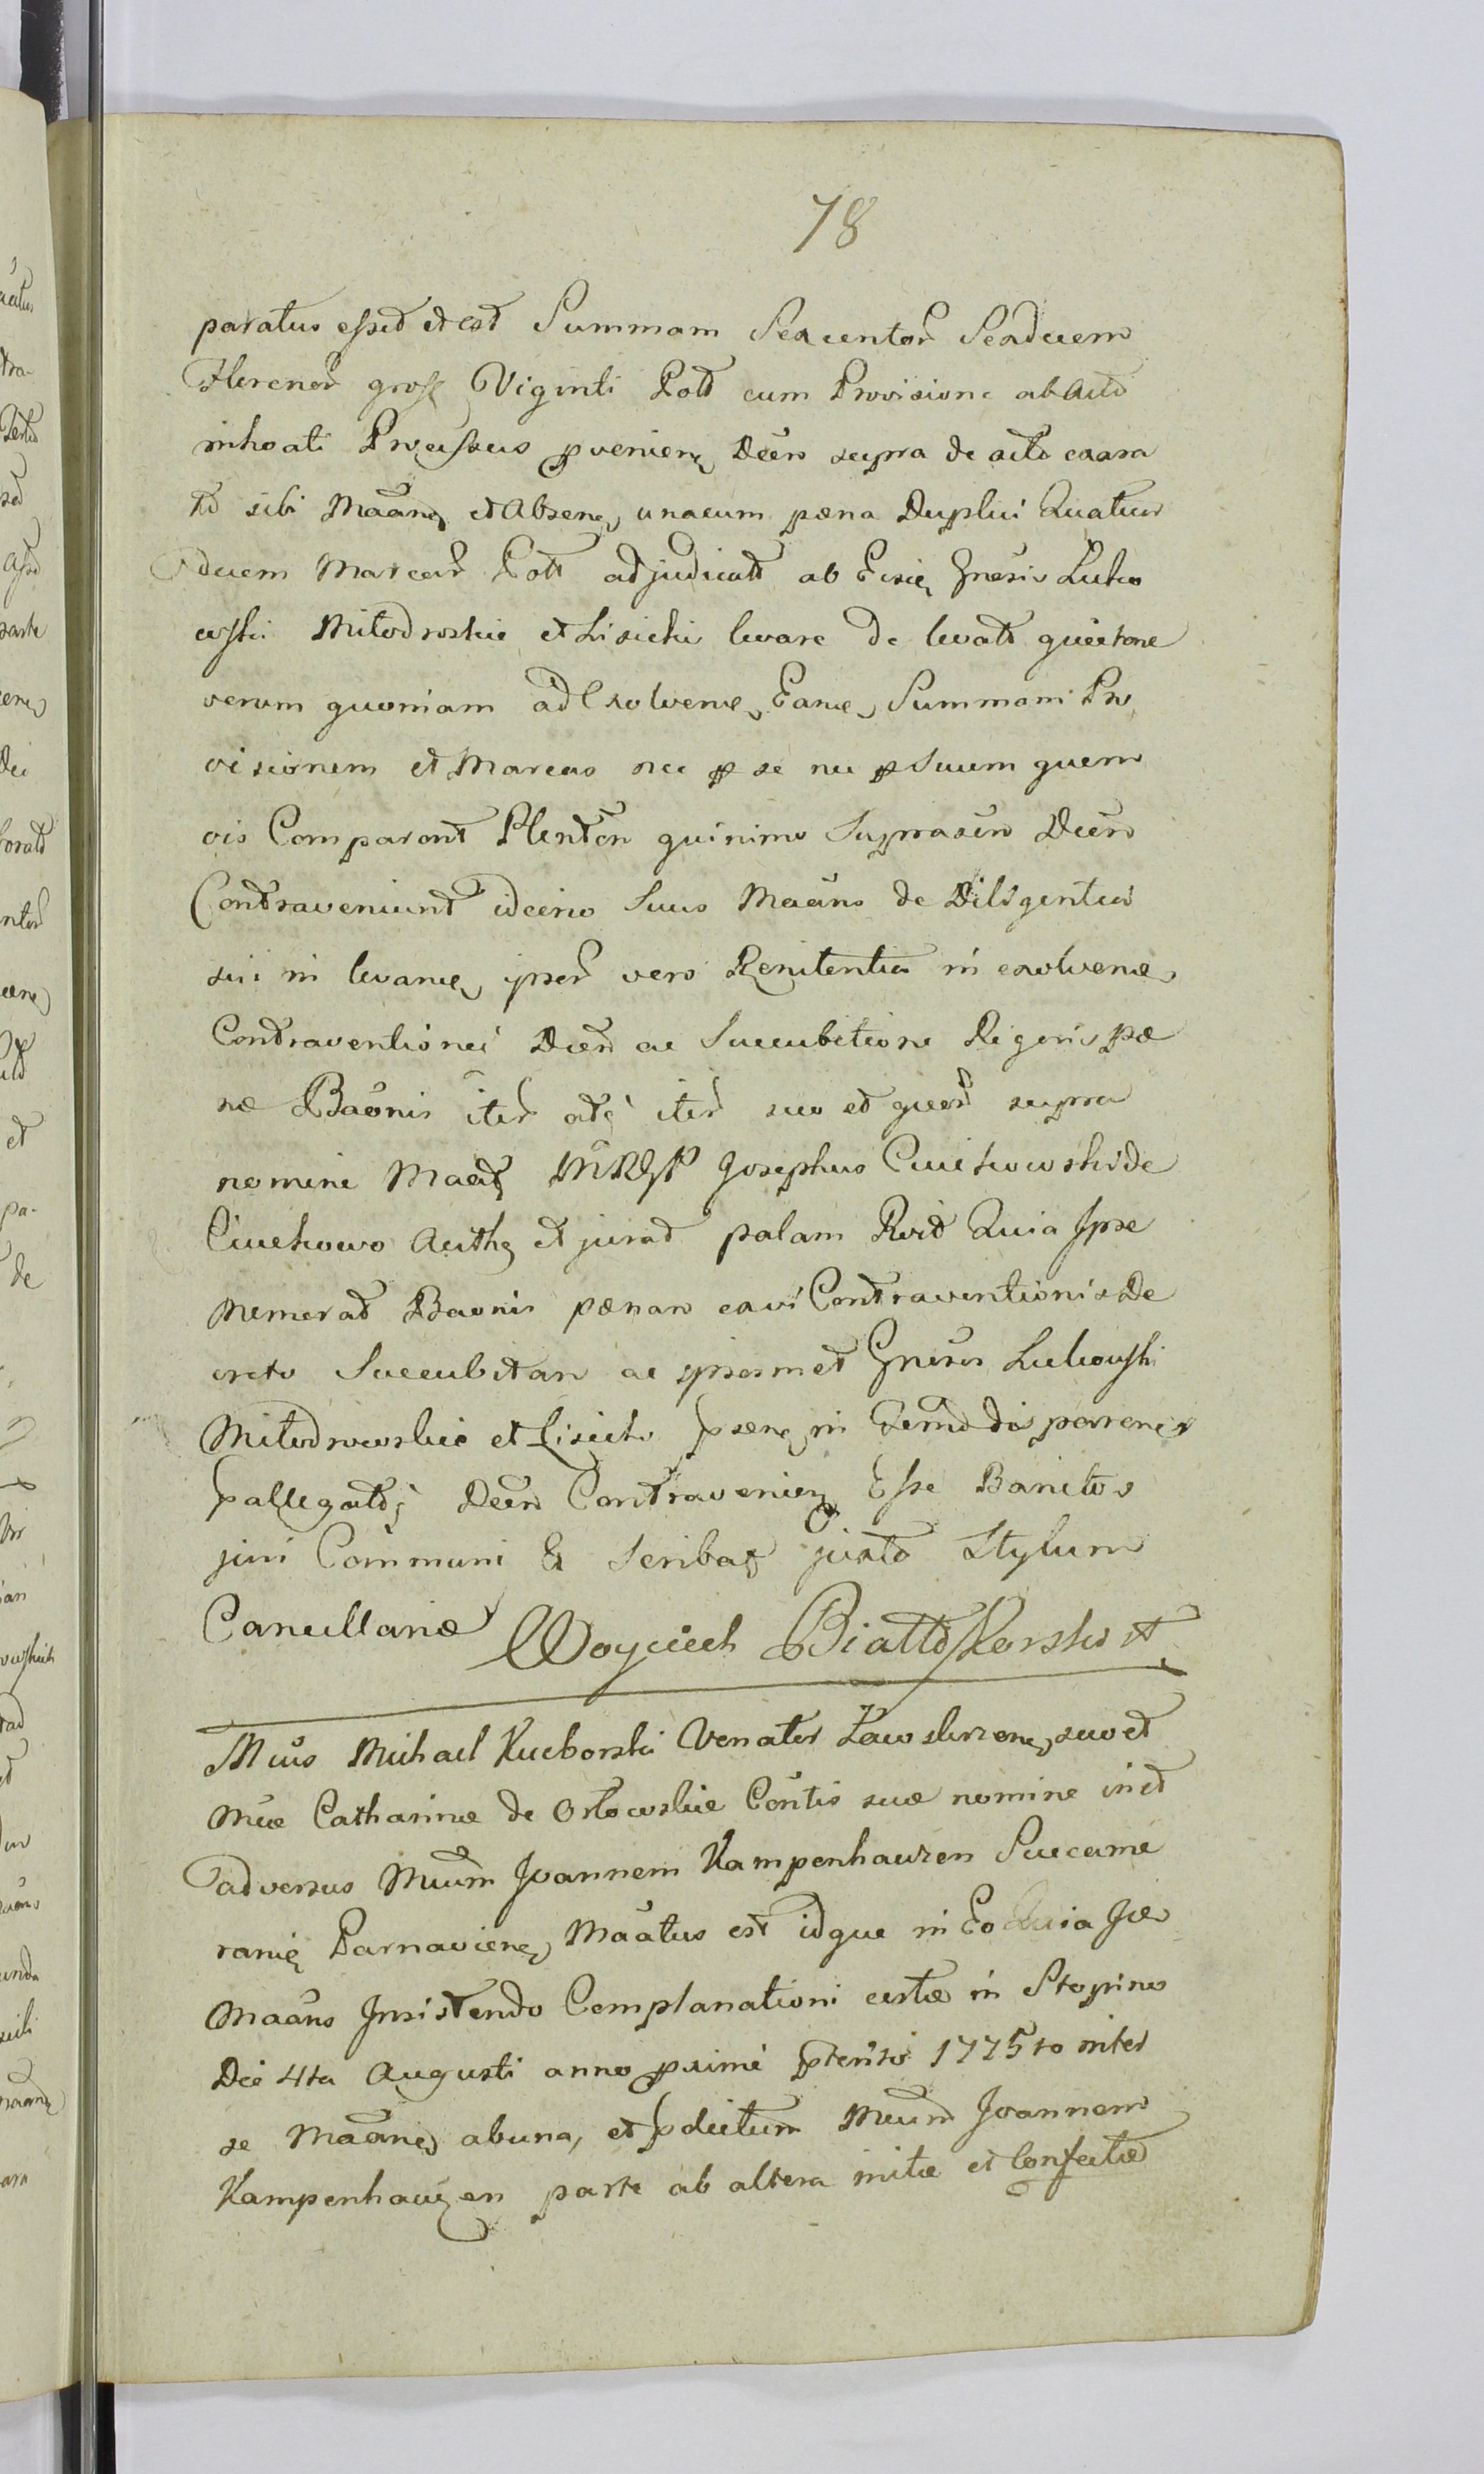 78
paratus esset et est Summam Sexcentor Sexdecem
Florenor gross Viginti Poll cum Provisione ab Actu
inhoati Processus pvenien Decro supra de actu exara
to sibi Maãne et Absene, unacum pæna Duplici Quatuor
decem Marcar Poll adjudicatt ab Eisde Gnesis Lutko
wski Miłodroskie et Lisicki levare de levatt quietare
verum quoniam ad Exolvene, Eande, Summam Pro
visionem et Marcas nec p se nec p Suum quem
vis Comparent Plenten quinimo Suprascro Decro
Contraveniunt idcirco Suus Maãns de Diligentia
sui in levande, ipsor vero Renitentia in exolvende
Contraventionei Decro ac Succubitione Rigoris pæ
næ Bãonis iter atq iter suo et quor supra
nomine Maatt MRGP Josephus Cwichowoski de
Ciwchowo Authe et jurat palam Rvit Quia Ipse
Memorat Baonis pænam exvi Contraventionis De
creto Succubitam ac ipsosmet Gnesos Lutkowski
Miłodrowskie et Lisicki psene, in Termo dis parene
pallegatt; Decro Contravenien Esse Banitos
juri Communi & Scribat juxta Stylum
Cancellariæ Woyciech Białłoskorski A
Mius Michael Kucborski Venator Zawskrzene, suo et
Mũe Catharinæ de Orłowskie Contis suæ nomine in et
adversus Muum Joannem Kampenhauzen Succame
rarie Parnaviene, Mãatus est idque in Eo Quia Jse
Maãns Insistendo Complanationi certæ in Stopino
Die 4ta Augusti anno pxime pterito 1775to inter
se Maãne, abuna, et pdictum Muum Joannem
Kampenhauzen parte ab altera initæ et Confectæ